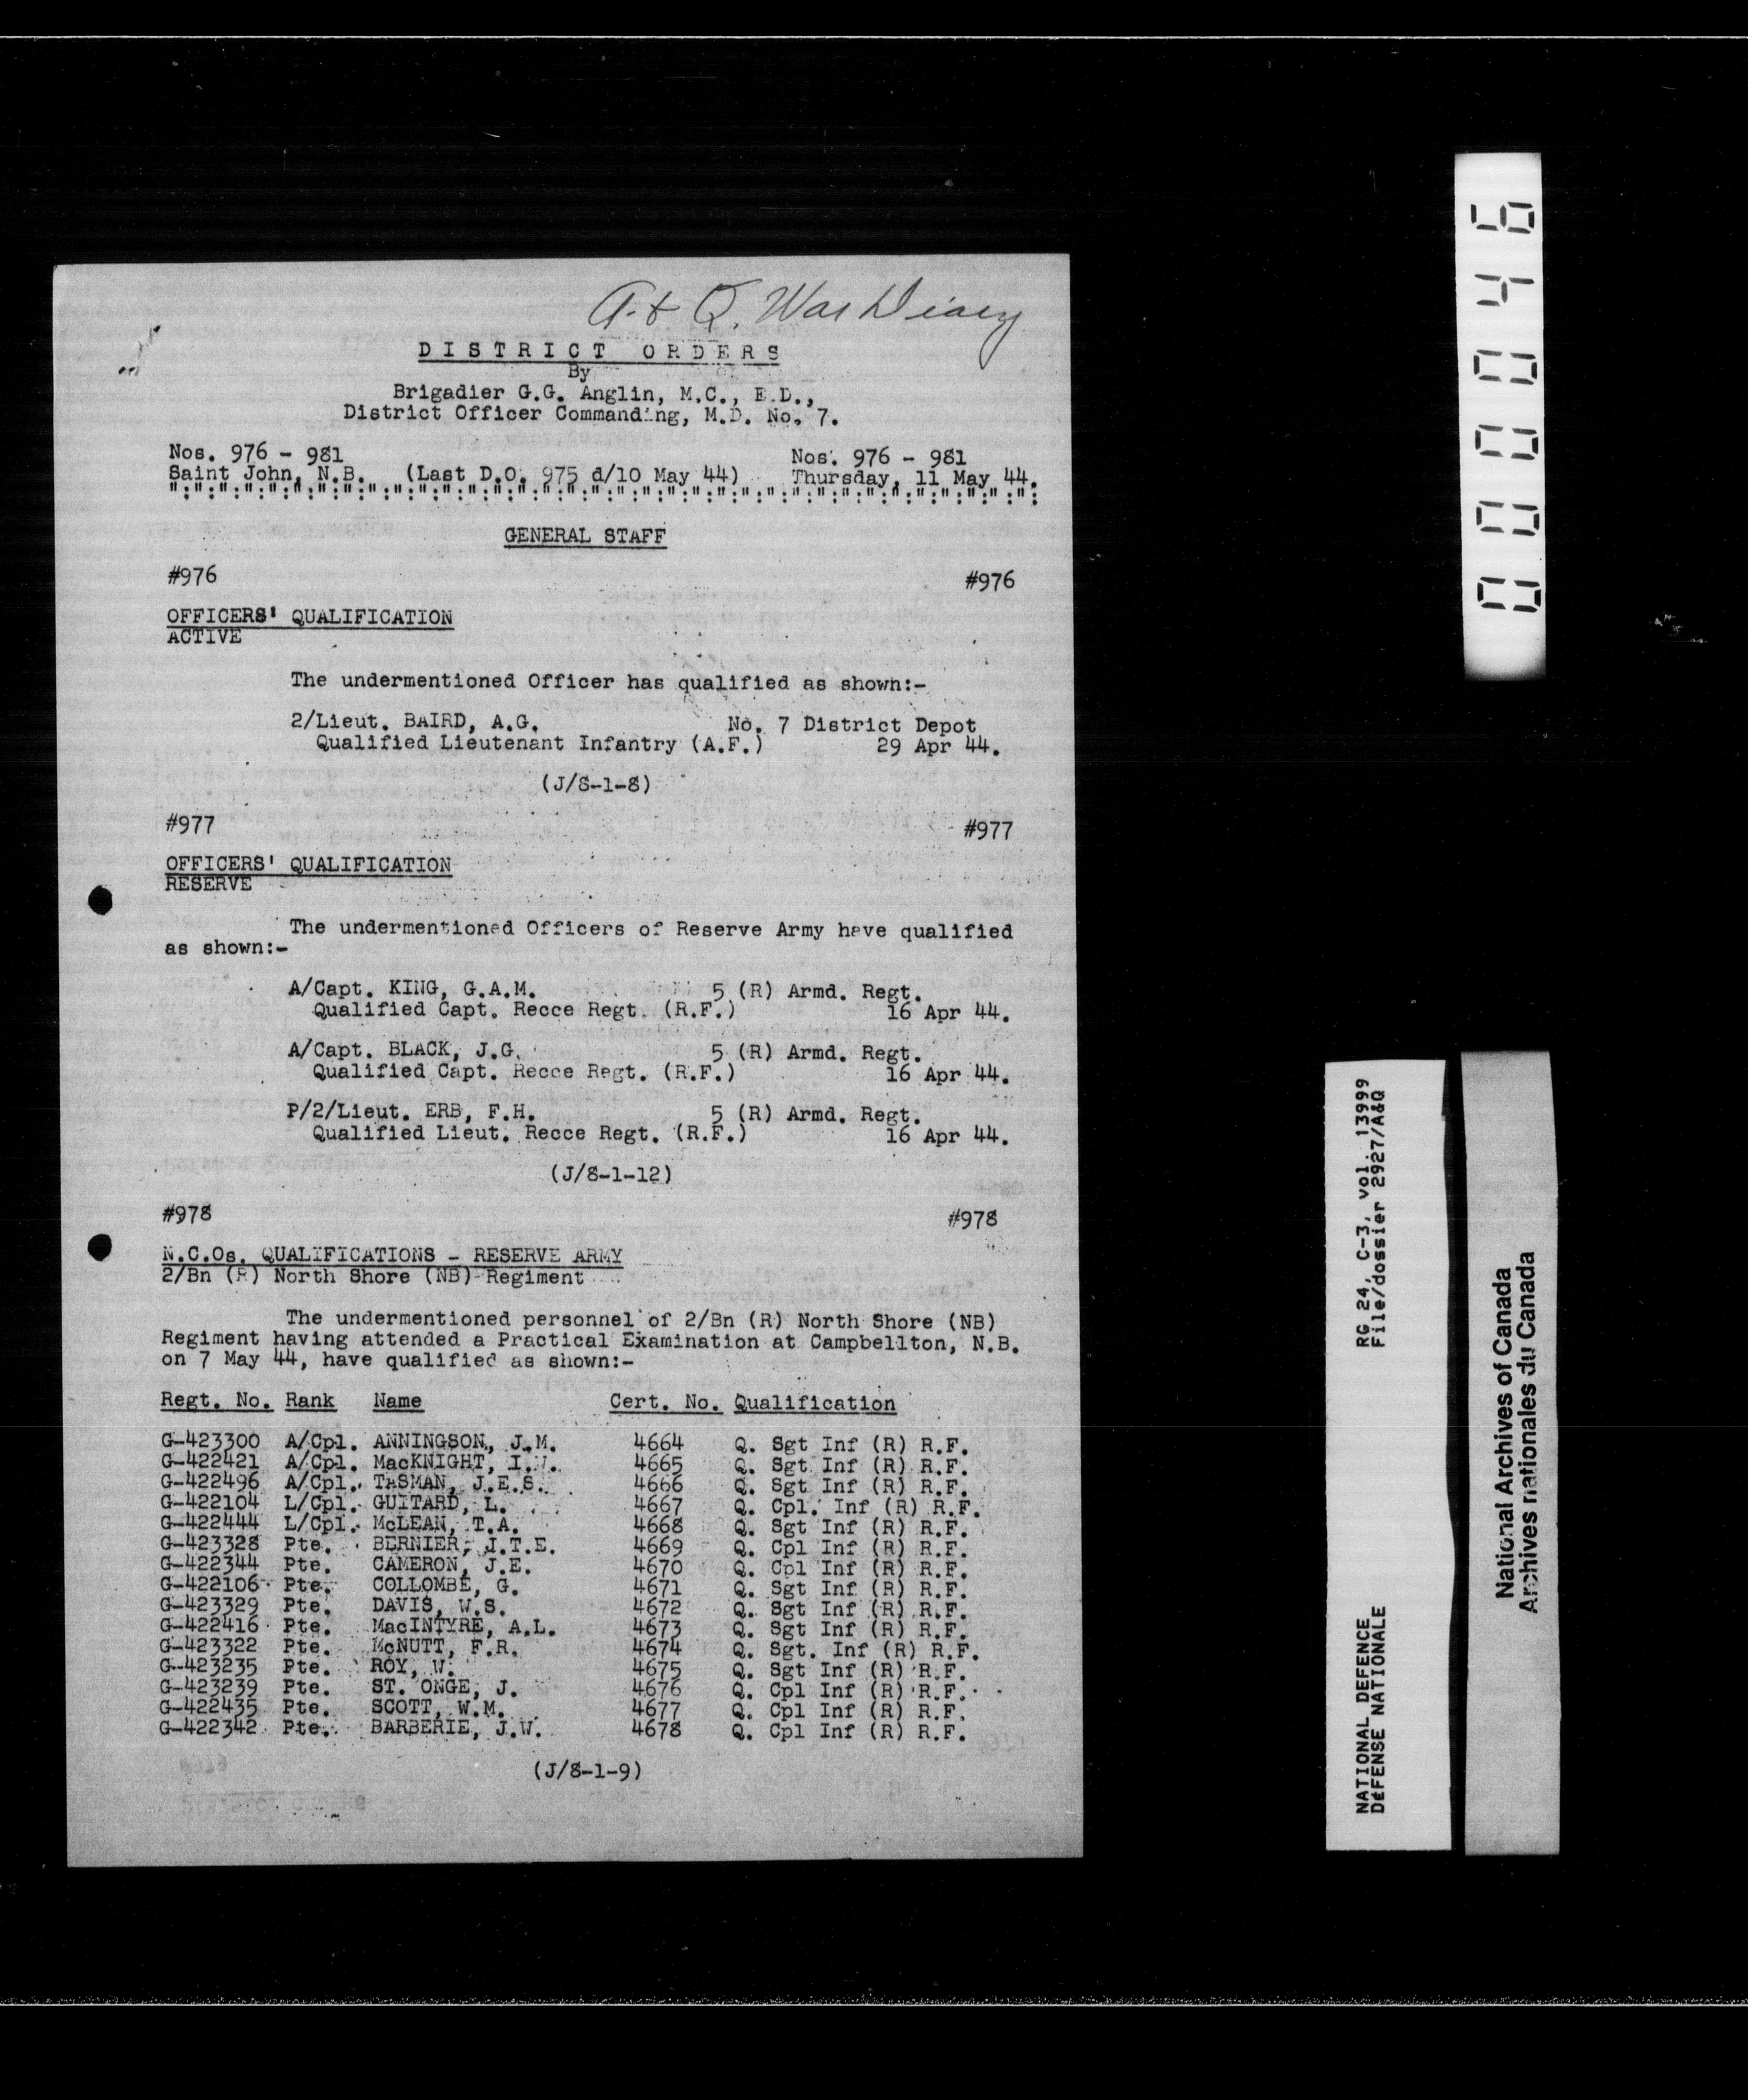 A. & Q. War Diary
DISTRICT ORDERS
By
Brigadier G.G. Anglin, M.C., E.D.,
District Officer Commanding, M.D. No. 7.
Nos. 976 - 981 Nos. 976 - 981
Saint John, N.B. (Last D.O. 975 d/10 May 44) Thursday, 11 May 44.
":":":":":":":":":":":":":":":":":":":":":":":":":":":":":":":":":":":
GENERAL STAFF
#976 #976
OFFICERS' QUALIFICATION
ACTIVE
The undermentioned Officer has qualified as shown:-
2/Lieut. BAIRD, A.G. No. 7 District Depot
Qualified Lieutenant Infantry (A.F.) 29 Apr 44.
(J/8-1-8)
#977 #977
OFFICERS' QUALIFICATION
RESERVE
The undermentioned Officers of Reserve Army have qualified
as shown:-
A/Capt. KING, G.A.M. 5 (R) Armd. Regt.
Qualified Capt. Recce Regt. (R.F.) 16 Apr 44.
A/Capt. BLACK, J.G. 5 (R) Armd. Regt.
Qualified Capt. Recce Regt. (R.F.) 16 Apr 44.
P/2/Lieut. ERB, F.H. 5 (R) Armd. Regt.
Qualified Lieut. Recce Regt. (R.F.) 16 Apr 44.
(J/8-1-12)
#978 #978
N.C.Os. QUALIFICATIONS - RESERVE ARMY
2/Bn (R) North Shore (NB) Regiment
The undermentioned personnel of 2/Bn (R) North Shore (NB)
Regiment having attended a Practical Examination at Campbellton, N.B.
on 7 May 44, have qualified as shown:-
Regt. No. Rank Name Cert. No. Qualification
G-423300 A/Cpl. ANNINGSON, J.M. 4664 Q. Sgt Inf (R) R.F.
G-422421 A/Cpl. MacKNIGHT, I.W. 4665 Q. Sgt Inf (R) R.F.
G-422496 A/Cpl. TASMAN, J.E.S. 4666 Q. Sgt Inf (R) R.F.
G-422104 L/Cpl. GUITARD, L. 4667 Q. Cpl. Inf (R) R.F.
G-422444 L/Cpl. McLEAN, T.A. 4668 Q. Sgt Inf (R) R.F.
G-423328 Pte. BERNIER, J.T.E. 4669 Q. Cpl Inf (R) R.F.
G-422344 Pte. CAMERON, J.E. 4670 Q. Cpl Inf (R) R.F.
G-422106 Pte. COLLOMBE, G. 4671 Q. Sgt Inf (R) R.F.
G-423329 Pte. DAVIS, W.S. 4672 Q. Sgt Inf (R) R.F.
G-422416 Pte. MacINTYRE, A.L. 4673 Q. Sgt Inf (R) R.F.
G-423322 Pte. McNUTT, F.R. 4674 Q. Sgt. Inf (R) R.F.
G-423235 Pte. ROY, W. 4675 Q. Sgt Inf (R) R.F.
G-423239 Pte. ST. ONGE, J. 4676 Q. Cpl Inf (R) R.F.
G-422435 Pte. SCOTT, W.M. 4677 Q. Cpl Inf (R) R.F.
G-422342 Pte. BARBERIE, J.W. 4678 Q. Cpl Inf (R) R.F.
(J/8-1-9)
000046
NATIONAL DEFENCE RG 24, C-3, vol. 13999
DéFENSE NATIONALE File/dossier 2927/A&Q
National Archives of Canada
Archives nationales du Canada